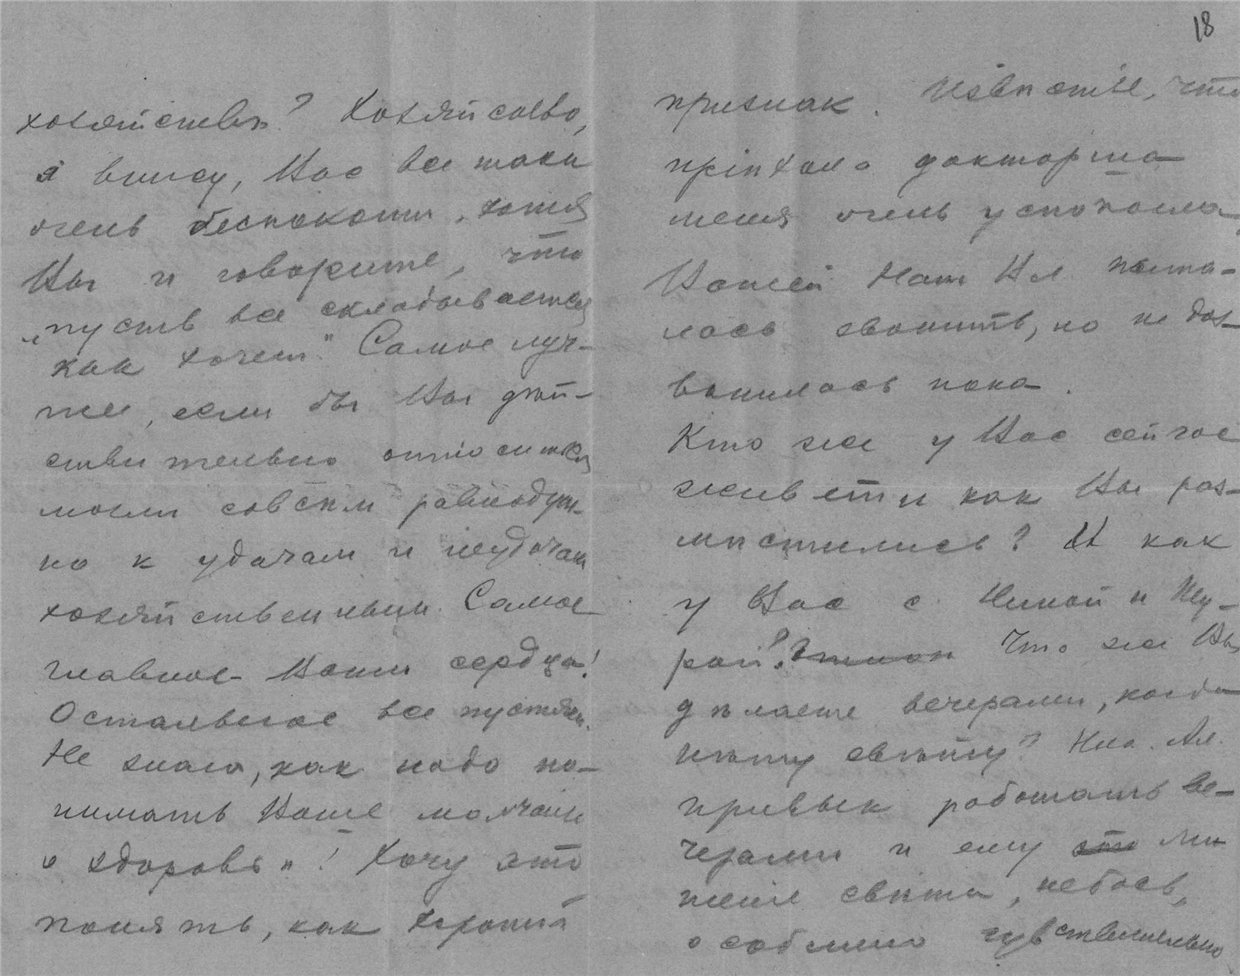 18
хозяйствѣ? Хозяйство,
я вижу, Вас все таки
очень беспокоит, хотя
Вы и говорите, что
„пусть все складывается
как хочет." Самое луч-
ше, если бы Вы дѣй-
ствительно относиться
могли совсѣм равнодуш-
но к удачам и неудачам
хозяйственным. Самое
главное – Ваши сердца!
Остальное все пустяки.
Не знаю, как надо по-
нимать Ваше молчанiе
о здоровьѣ! Хочу это
понять, как хорошiй
признак. Извѣстiе, что
прiѣхала докторша
меня очень успокоило,
Вашей Нат Ил пыта-
лась звонить, но не доз-
вонилась пока.
Кто же у Вас сейчас
живет и и как Вы раз-
мѣстились? И как
у Вас с Ниной и Шу-
рой? Что же Вы
дѣлаете вечерами, когда
нѣту свѣту? Ник. Ал.
привык работать ве-
черами и ему ли-
шенiе свѣта, небось,
особенно чувствительно